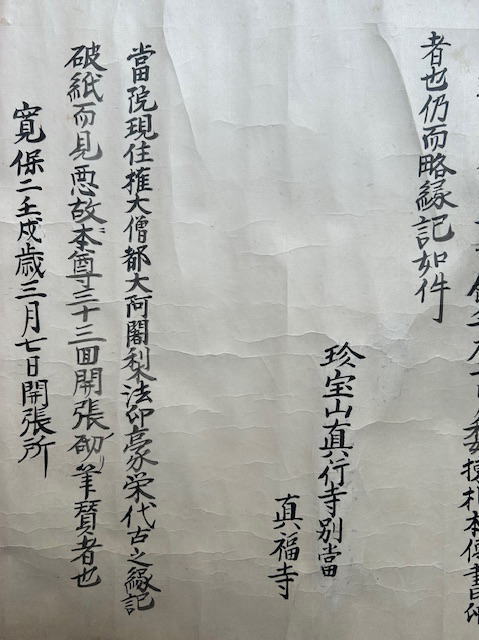 者也仍而略縁記如件
珍宝山真行寺別當
真福寺
當院現住権大僧都大阿闍梨法印豪栄代古之縁記
破紙而見悪故本尊三十三回開張砌筆賛者也
寛保二壬戌歳三月七日開張所